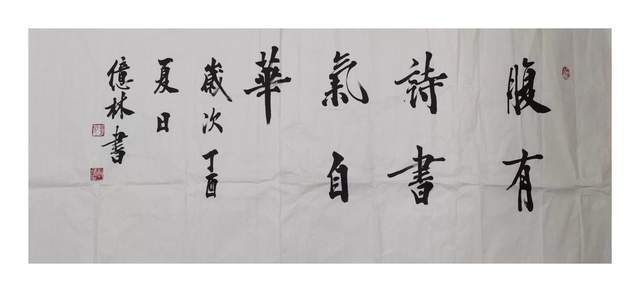 腹有
詩書
氣自
華
歲次丁酉
夏日
億林書